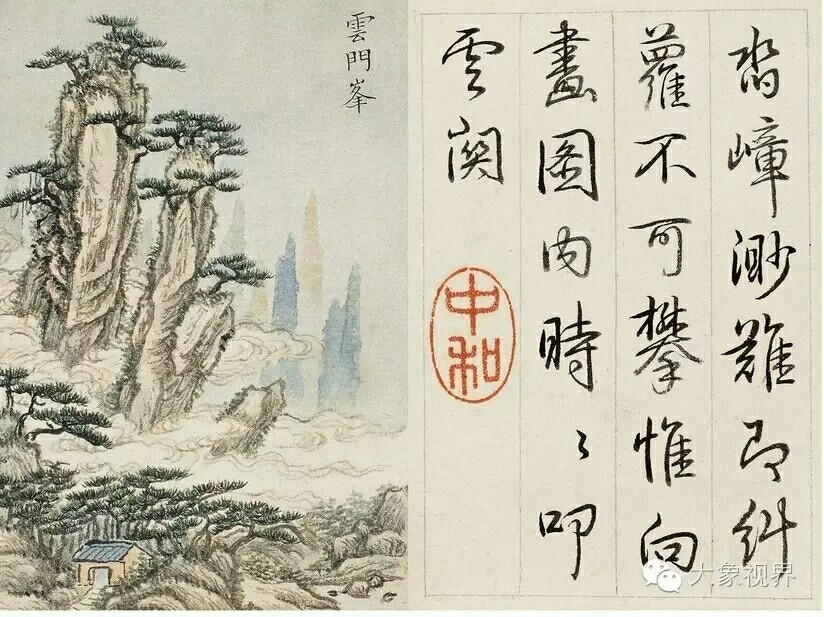 沓嶂渺難即糾
蘿不可攀惟向
畫圖內時〻叩
雲関
中和
雲門峯
大象视界